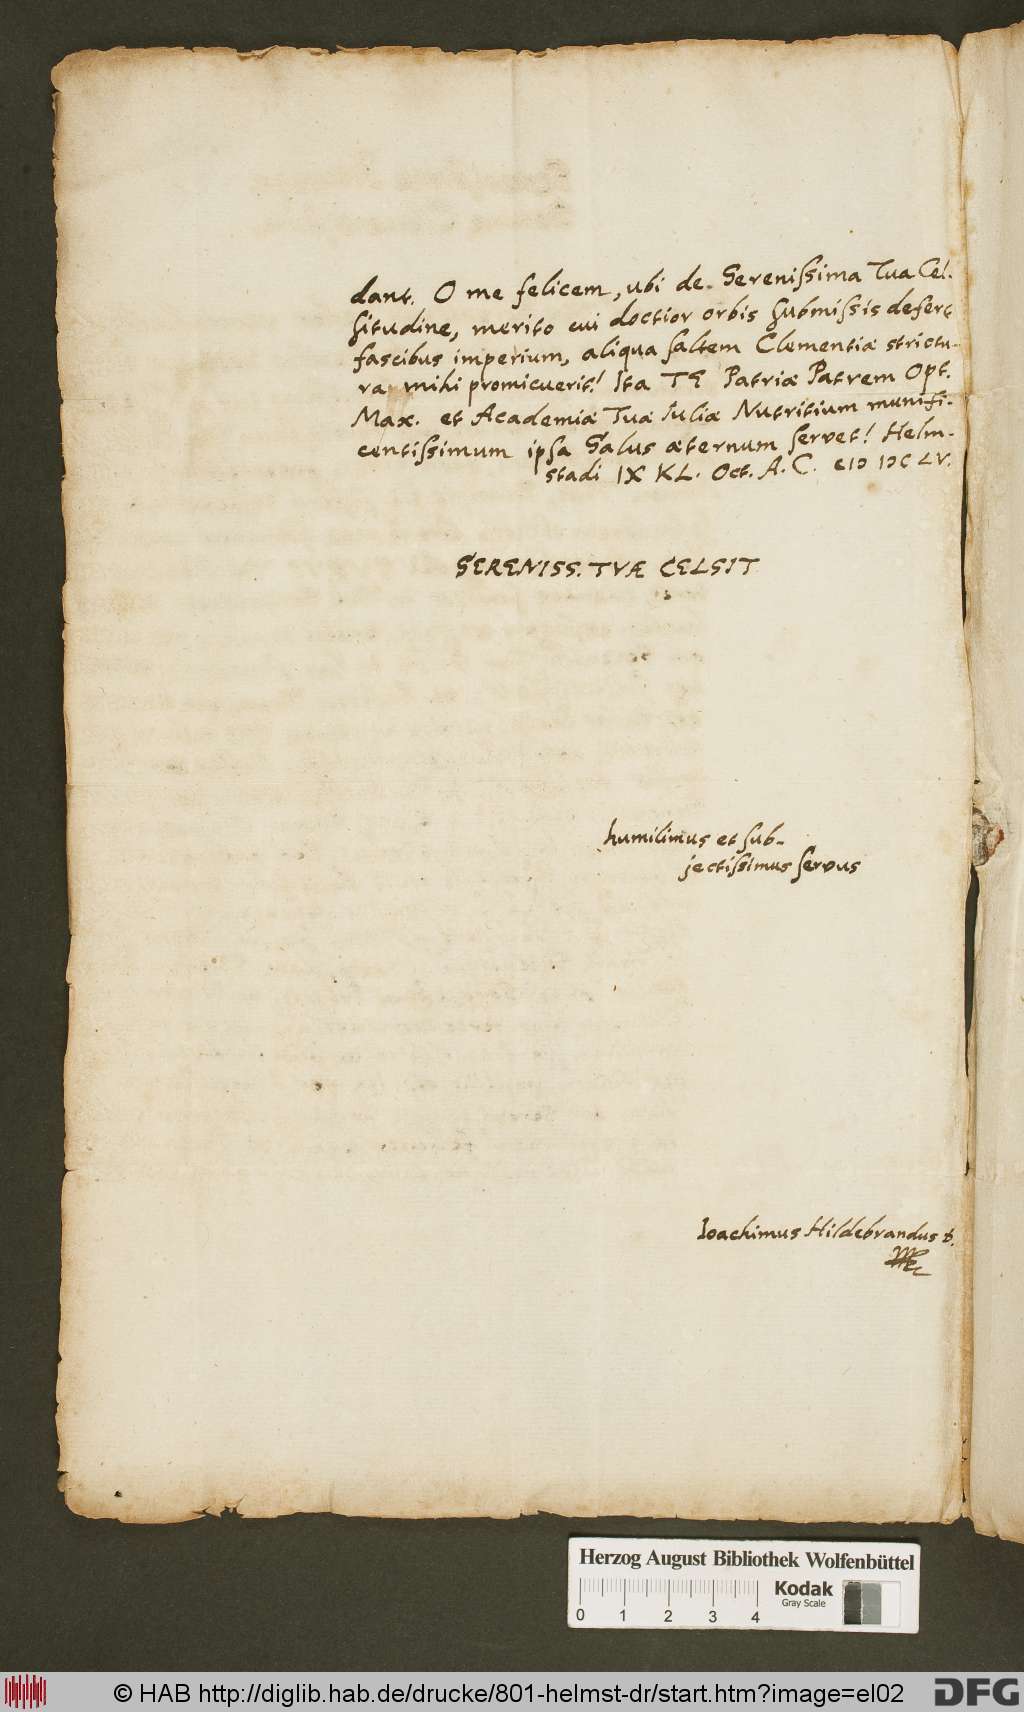 dant. O me felicem, ubi de Serenissima Tua Cel-
situdine, merito cui doctior orbis submissis defert
fascibus imperium, aliqua saltem Clementiæ strictu-
ra mihi promicuerit! Ita TE Patriæ Patrem Opt.
Max. et Academiæ Tuæ Iuliæ Nutritium munifi-
centissimum ipsa Salus æternum servet! Helm-
stadi IX KL. Oct. A. C. CIƆ IƆC LV.
SERENISS. TVÆ CELSIT
humilimus et sub-
jectissimus servus
Ioachimus Hildebrandus D.
Herzog August Bibliothek Wolfenbüttel
Kodak
Gray Scale
0 1 2 3 4
© HAB http://diglib.hab.de/drucke/801-helmst-dr/start.htm?image=el02
DFG